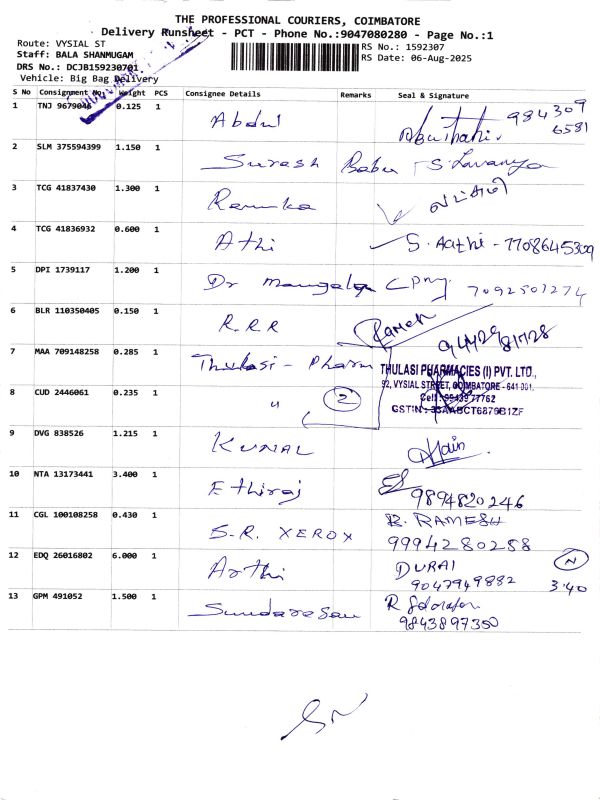 THE PROFESSIONAL COURIERS, COIMBATORE
Delivery Runsheet - PCT - Phone No.:9047080280 - Page No.:1
Route: VYSIAL ST
RS No.: 1592307
Staff: BALA SHANMUGAM
RS Date: 06-Aug-2025
DRS No.: DCJB159230701
Vehicle: Big Bag Delivery
S No Consignment No. Weight PCS Consignee Details Remarks Seal & Signature
1 TNJ 9679046 0.125 1 Abdul 984309
6581
2 SLM 375594399 1.150 1 Suresh Babu S. Lavanya
3 TCG 41837430 1.300 1 Renuka
4 TCG 41836932 0.600 1 Athi S. Aathi - 7708645309
5 DPI 1739117 1.200 1 Dr 7092501274
6 BLR 110350405 0.150 1 R.R.R Ramesh
7 MAA 709148258 0.285 1 Thulasi - Pharm
THULASI PHARMACIES (I) PVT. LTD.,
92, VYSIAL STREET, COIMBATORE - 641 001.
8 CUD 2446061 0.235 1 " 2
GSTIN : 33AABCT6879B1ZF
9 DVG 838526 1.215 1 KUNAL
10 NTA 13173441 3.400 1 Ethiraj
9894820246
11 CGL 100108258 0.430 1 S.R. XEROX R. RAMESH
9994280258
12 EDQ 26016802 6.000 1 Arthi DURAI N
9047949882 3.40
13 GPM 491052 1.500 1 Sundaresan
9843897350